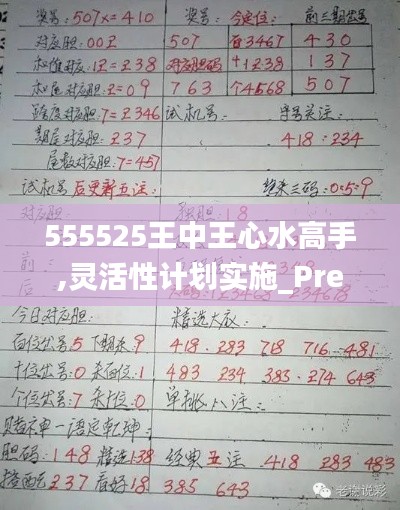 奖号:507x=410 奖号: 今定位: 前三期奖号
对应胆:00工 507 百3467 430
和值对应:1工=238 对应胆码 +1238 137
和尾对应胆:2=09 763 个4568 507
跨度对应胆:7=2346 试机号: 字号关注:
期尾对应胆:237 418:234
尾数对应胆:7=457
试机号后更新五注: 绝杀三码:0:5:9
对应胆: 18
555525王中王心水高手
,灵活性计划实施_Pre
今日对应胆: 精选大底:
百位奖号5下期杀9 418.283 718 716-481
十位奖号:0杀百位:1 483 234 383-274 643
个位奖号:7杀十位:0 单挑八注:
赌神一语定乾坤:
胆码:148 精选138 经典五注 418 283 483
237看好18 385 643
老谈说彩